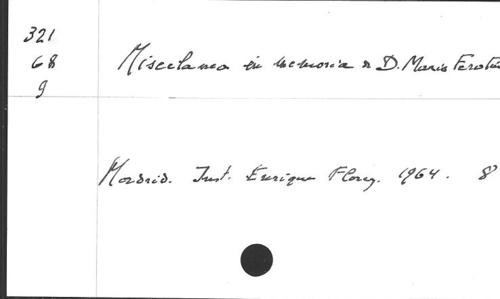 321
68
9
Miscelanea in memoria D. Mario Ferotin
Madrid. Inst. Enrique Florez. 1964. 8º